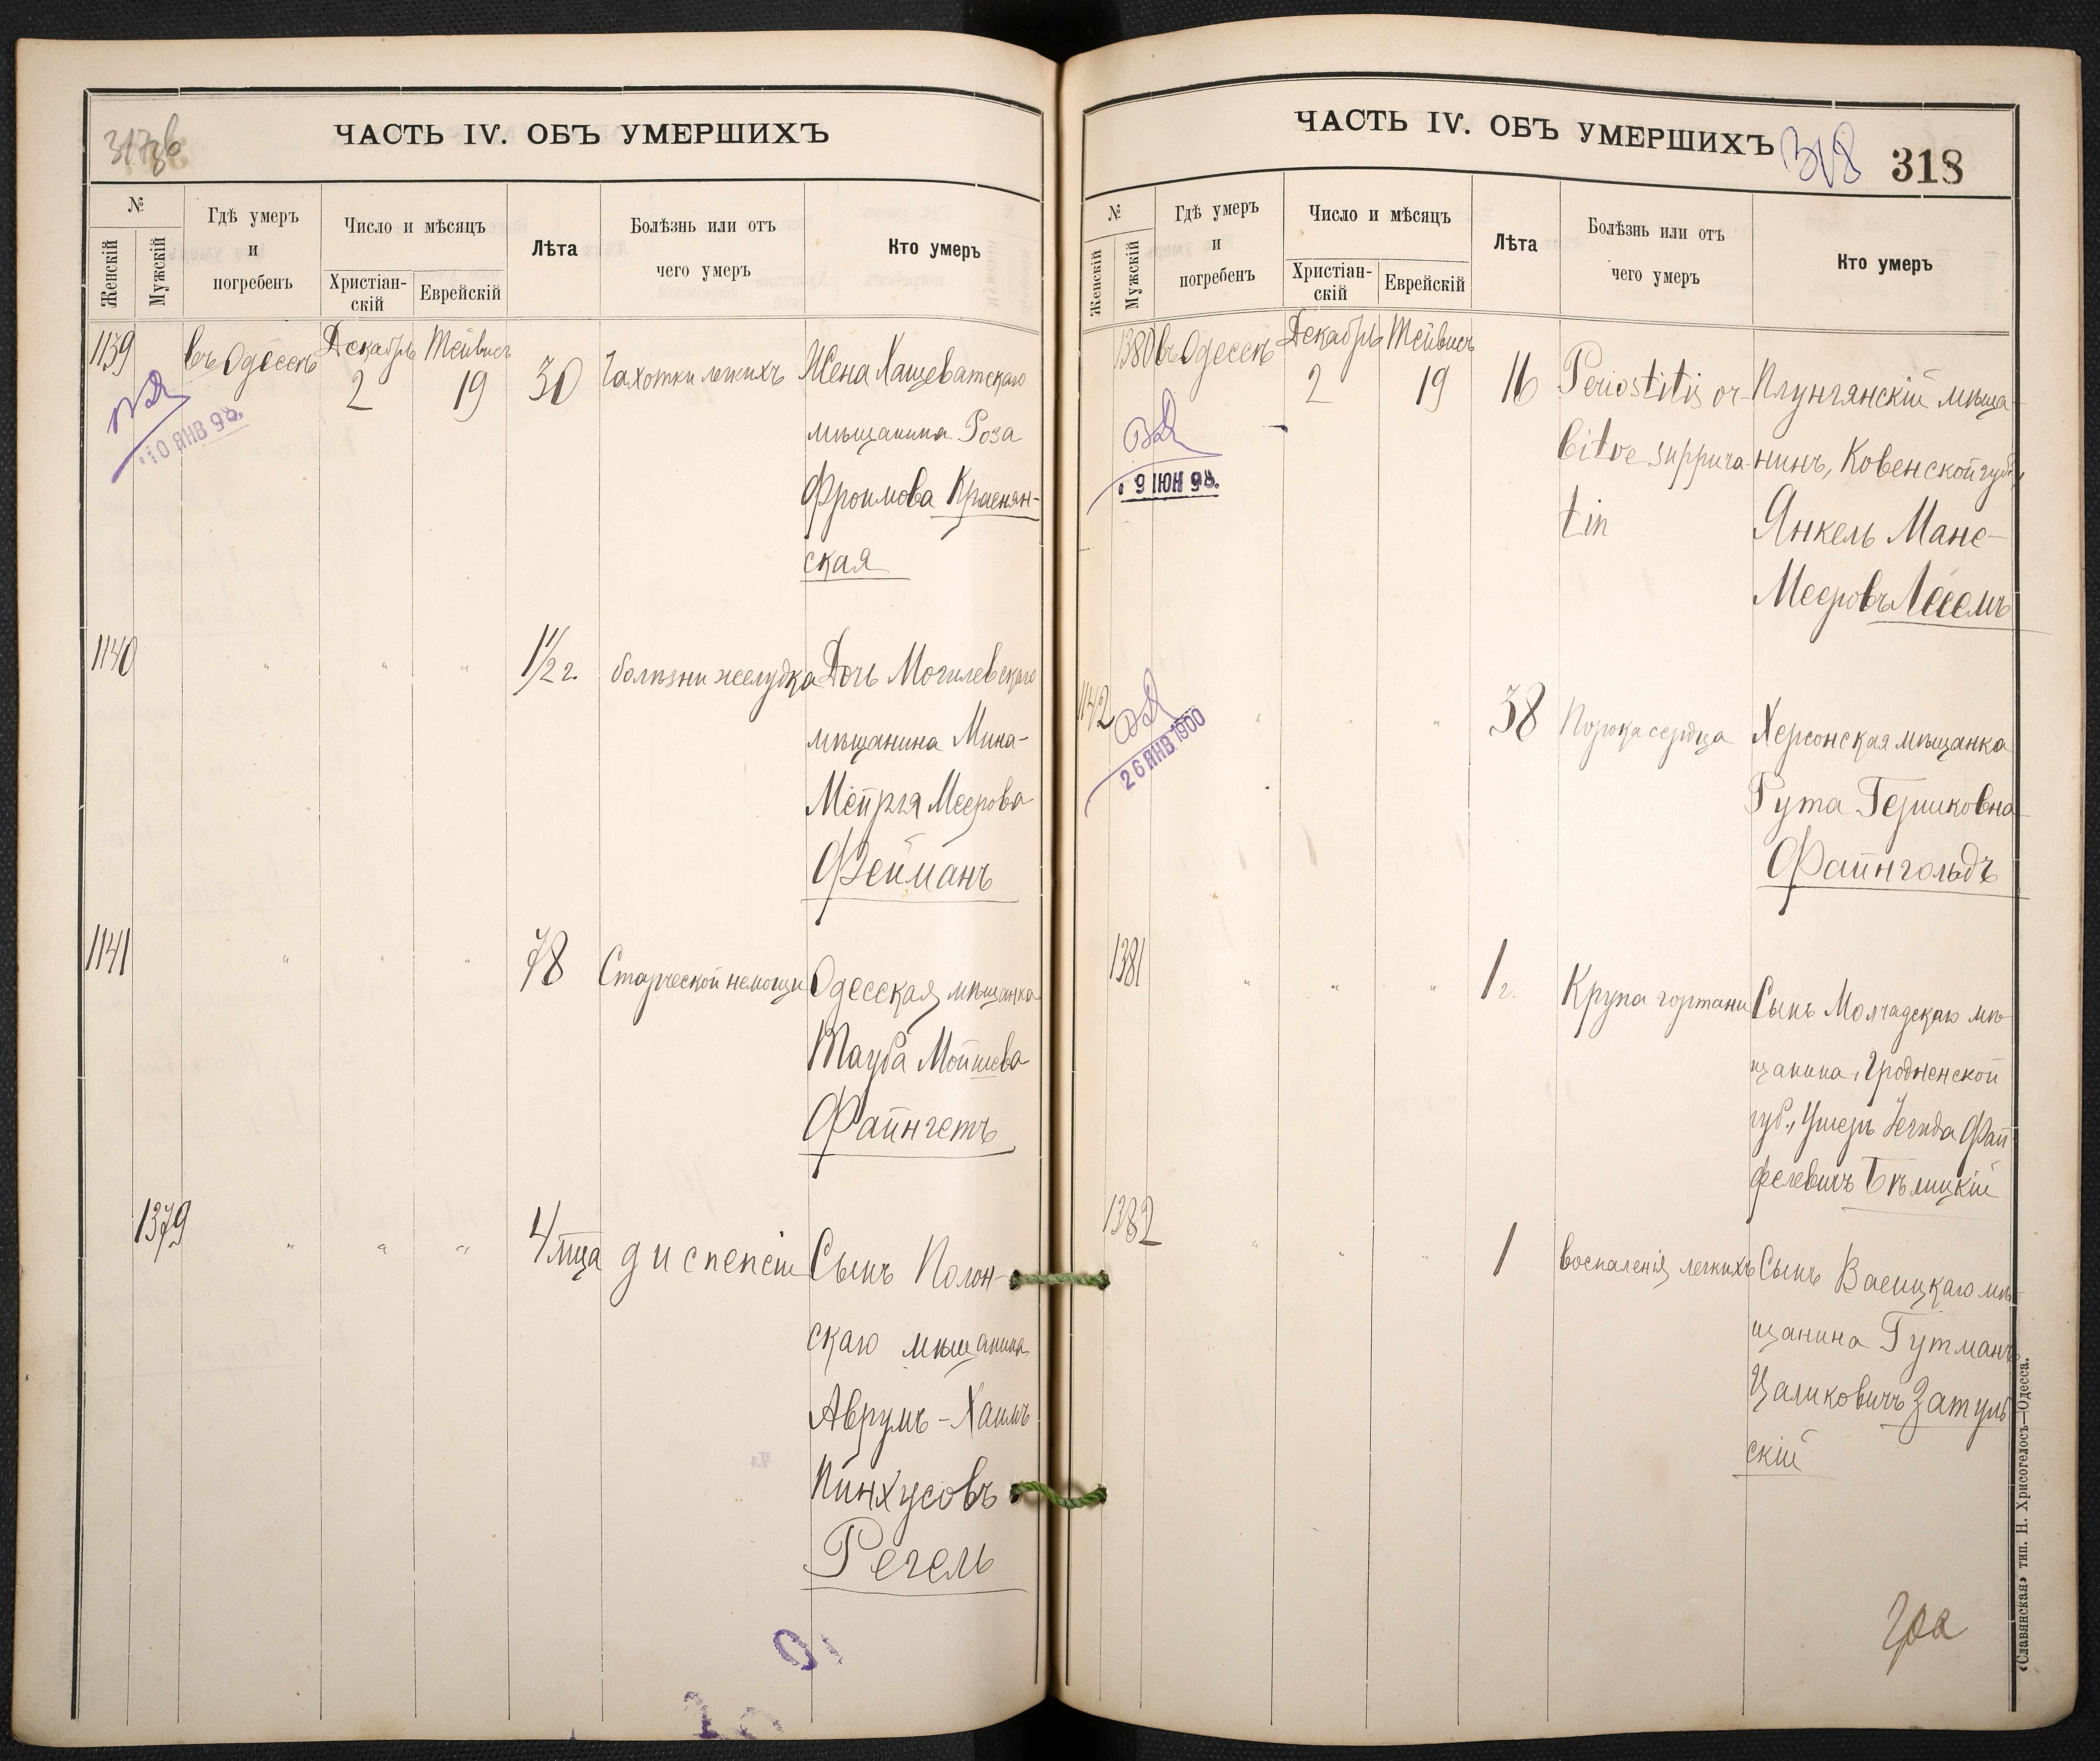 317об
ЧАСТЬ IV. ОБЪ УМЕРШИХЪ
№
Женскій
Мужскій
Гдѣ умеръ
и
погребенъ
Число и мѣсяцъ
Христіан-
скій
Еврейскій
Лѣта
Болѣзнь или отъ
чего умеръ
Кто умеръ
1139
въ Одессѣ
Декабрь
2
Тейвисъ
19
30
Чахотки легкихъ
Жена Хащеватскаго
мѣщанина Роза
Фроимова Краснян-
ская
10 ЯНВ 98.
1140
" " "
1 1/2 г.
болѣзни желудка
Дочь Могилевскаго
мѣщанина Мина-
Меерова
Фейманъ
1141
" " "
78
Старческой немощи
Одесская мѣщанка
Тауба Мошкова
Файнгетъ
1379
" " "
4 мца
диспепсіи
Сынъ Полон-
скаго мѣщанина
Аврумъ-Хаимъ
Пинхусовъ
Регель
ЧАСТЬ IV. ОБЪ УМЕРШИХЪ
318
318
№
Женскій
Мужскій
Гдѣ умеръ
и
погребенъ
Число и мѣсяцъ
Христіан-
скій
Еврейскій
Лѣта
Болѣзнь или отъ
чего умеръ
Кто умеръ
1380
въ Одессѣ
Декабрь
2
Тейвисъ
19
16
Periostitis or-
bitoe suppura-
tin
Плунгянскій мѣща-
нинъ, Ковенской губ.,
Янкель Мане-
Мееровъ Лесемъ
9 ІЮН 98.
1142
" " "
38
Порока сердца
Херсонская мѣщанка
Гута Гершковна
Файнгольдъ
26 ЯНВ 1900
1381
" " "
1 г.
Крупа гортани
Сынъ Молчадскаго мѣ-
щанина, Гродненской
губ., Ушеръ Фай-
фелевичъ Бѣлицкій
1382
" " "
1
воспаленія легкихъ
Сынъ мѣ-
щанина Гутманъ
Цаликовичъ Затуль-
скій
«Славянская» тип. Н. Хрисогелосъ—Одесса.